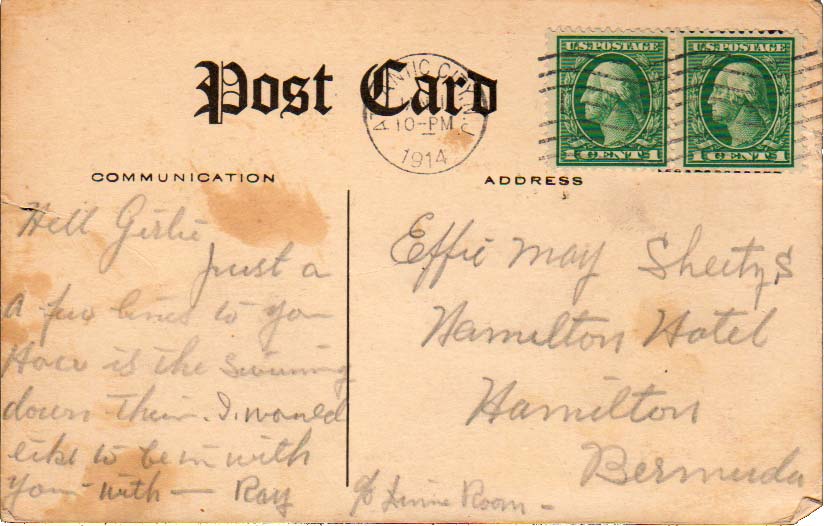 Post Card
ATLANTIC CITY, N.J.
10-PM
1914
U.S. POSTAGE U.S. POSTAGE
1 CENT 1 1 CENT 1
COMMUNICATION
ADDRESS
Hell Girlie
Just a
A few lines to you
How is the swimming
down their. I. would
like to be in with
you with — Ray
Effie May
Hamilton Hotel
Hamilton
Bermuda
c/o Room -